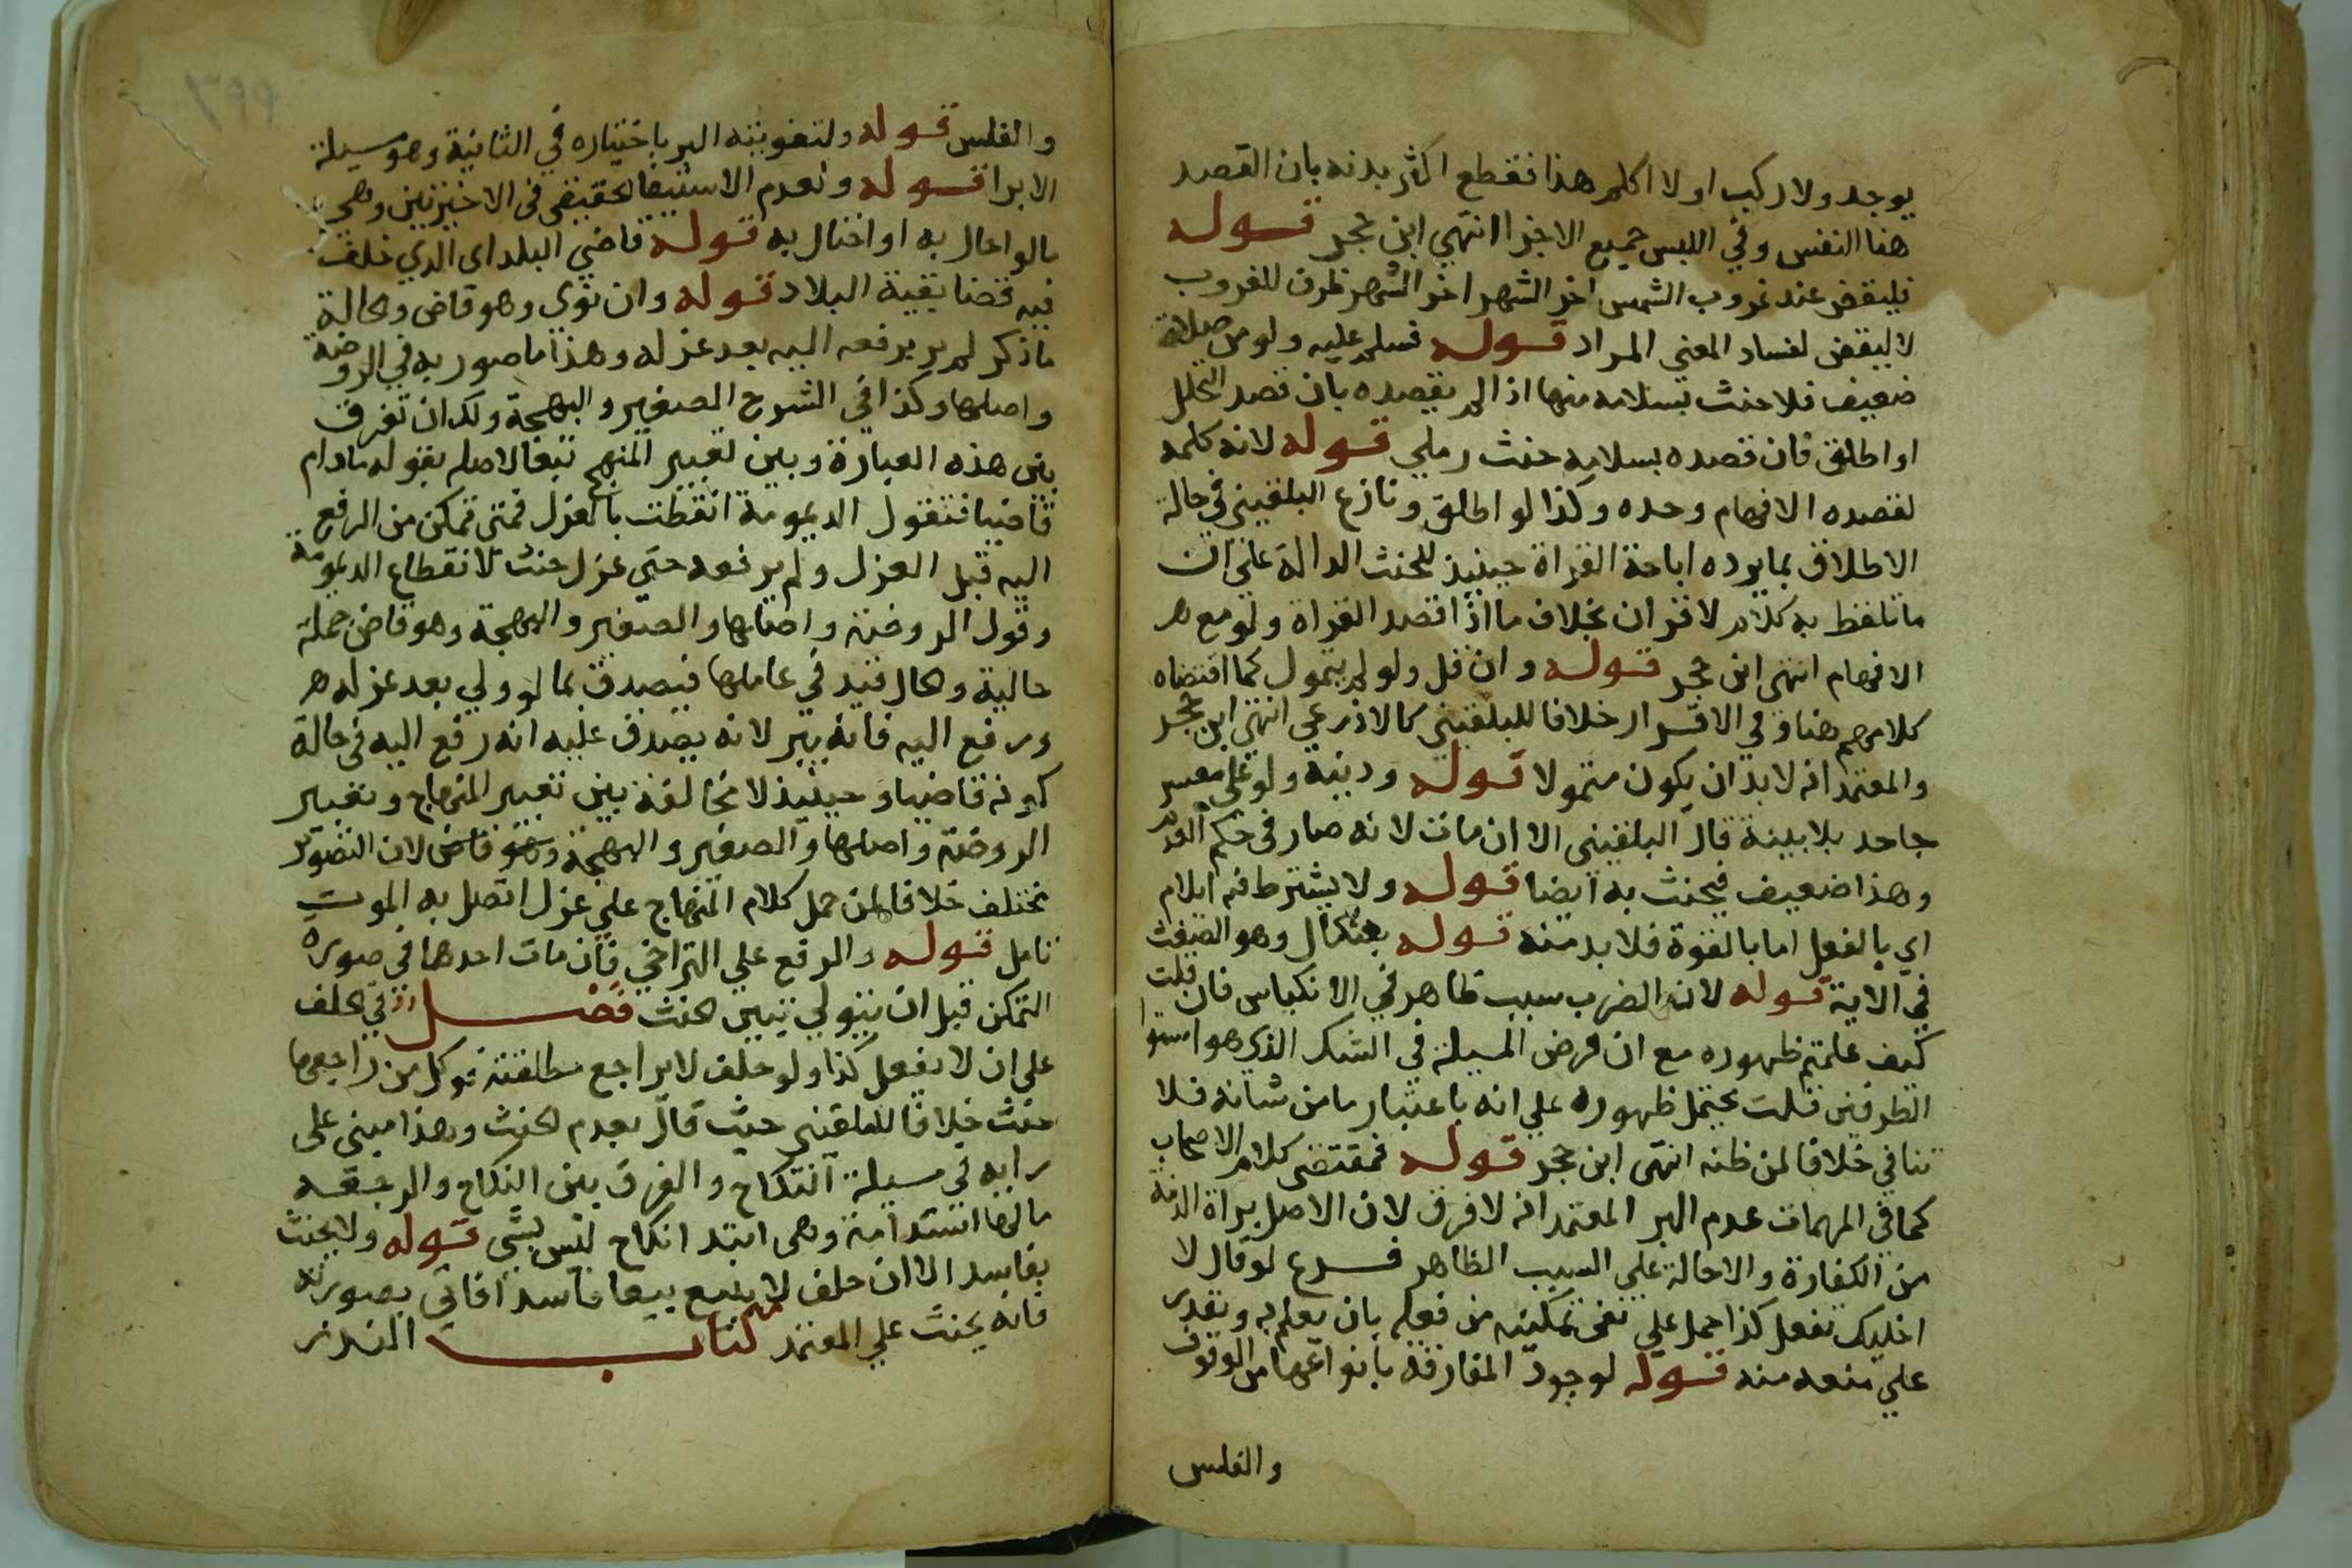 يوجد ولا اركب او لا اكلم هذا فقطع اكثر بدنه بان القصد
هنا النفس وفي اللبس جميع الاجزا انتهي ابن حجر قوله
فليقض عند غروب الشمس اخر الشهر اخر الشهر ظرف للغروب
لا ليقض لفساد المعني المراد قوله فسلم عليه ولو من صلاة
ضعيف فلا حنث بسلامه منها اذا لم يقصده بان قصد التحلل
او اطلق فان قصده بسلامه حنث رملي قوله لانه كلمه
لقصده الافهام وحده وكذا لو اطلق ونازع البلقيني في حالة
الاطلاق بما يرده اباحة القراة حينيذ للجنب الدالة علي ان
ما تلفظ به كلام لا قران بخلاف ما اذا قصد القراة ولو مع
الافهام انتهي ابن حجر قوله وان قل ولو لم يتمول كما اقتضاه
كلامهم هنا وفي الاقرار خلافا للبلقيني كالاذرعي انتهي ابن حجر
والمعتمد انه لا بد ان يكون متمولا قوله ودينه ولو علي معسر
جاحد بلا بينة قال البلقيني الا ان مات لانه صار في حكم العدم
وهذا ضعيف فيحنث به ايضا قوله ولا يشترط فيه ايلام
اي بالفعل اما بالقوة فلا بد منه قوله بعثكال وهو الضغث
في الاية قوله لان الضرب سبب ظاهر في الانكباس فان قلت
كيف علمتم ظهوره مع ان فرض المسيلة في الشك الذي هو استوا
الطرفين قلت يحتمل ظهوره علي انه باعتبار ما من شانه فلا
تنافي خلافا لمن ظنه انتهي ابن حجر قوله فمقتضي كلام الاصحاب
كما في المهمات عدم البر المعتمد انه لا فرق لان الاصل براة الذمة
من الكفارة والاحالة علي السبب الظاهر فرع لو قال لا
اخليك تفعل كذا حمل علي نفي تمكينه من فعله بان يعلم به ويقدر
علي منعه منه قوله لوجود المفارقة بانواعها من الوقوف
والفلس
والفلس قوله ولتفويته البر باختياره في الثانية وهو مسيلة
الابرا قوله ولعدم الاستيفا الحقيقي في الاخيرتين وهي
ما لو احال به او احتال به قوله قاضي البلد اي الذي حلف
فيه قضا بقية البلاد قوله وان نوي وهو قاض والحالة
ما ذكر لم يبر برفعه اليه بعد عزله وهذا ما صور به في الروضة
واصلها وكذا في الشرح الصغير والبهجة ولك ان تفرق
بين هذه العبارة وبين تعبير المنهج تبعا لاصله بقوله ما دام
قاضيا فتقول الديمومة انقطت بالعزل فمتي تمكن من الرفع
اليه قبل العزل ولم يرفعه حتي عزل حنث لانقطاع الديمومة
وقول الروضة واصلها والصغير والبهجة وهو قاض جملة
حالية والحال قيد في عاملها فيصدق بما لو ولي بعد عزله
ورفع اليه فانه يبر لانه يصدق عليه انه رفع اليه في حالة
كونه قاضيا وحينيذ لا مخالفة بين تعبير المنهاج وتعبير
الروضة واصلها والصغير والبهجة وهو قاض لان التصوير
مختلف خلافا لمن حمل كلام المنهاج علي عزل اتصل به الموت
تامل قوله والرفع علي التراخي فان مات احدهما في صورة
التمكن قبل ان يتولي تبين الحنث فصل في الحلف
علي ان لا يفعل كذا ولو حلف لا يراجع مطلقته فوكل من راجعها
حنث خلافا للبلقيني حيث قال بعدم الحنث وهذا مبني علي
رايه في مسيلة النكاح والفرق بين النكاح والرجعة
بانها استدامة وهي ابتدا نكاح ليس بشي قوله ولا يحنث
بفاسد الا ان حلف لا يبيع بيعا فاسدا فاتي بصورته
فانه يحنث علي المعتمد كتاب النذر